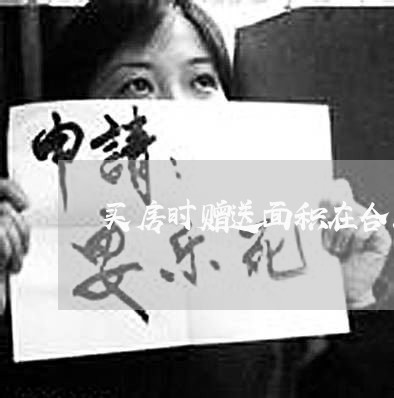 申請：
买房时赠送面积在合
安乐死